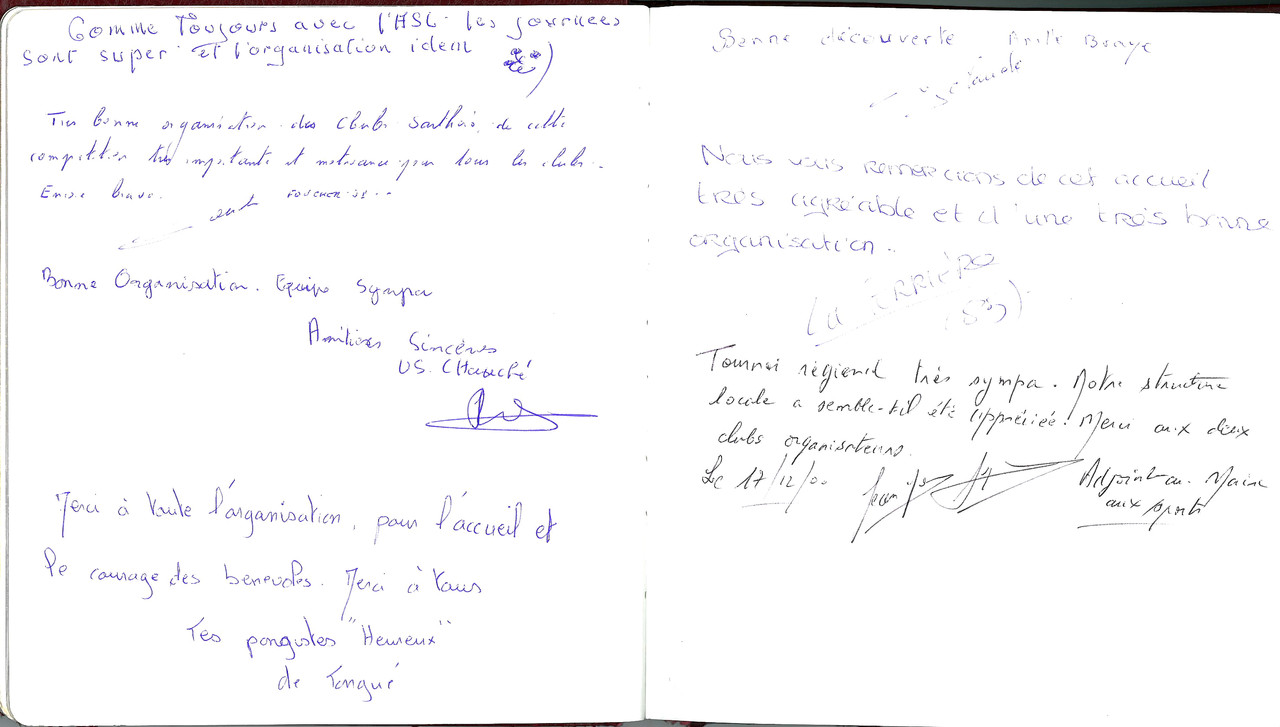 Comme Toujours avec l'HSL. les journées
sont super et l'organisation idem
Très bonne organisation des clubs Sarthois, de cette
competition très importante et pour tous les clubs.
Encore bravo.
Bonne Organisation. Equipe Sympa
Amitiés Sincères
US. Chauché
Merci à toute l'organisation, pour l'accueil et
le courage des benevoles. Merci à tous
Tes pongistes "Heureux"
de Tangué
Bonne découverte
Nous vous remercions de cet accueil
très agréable et d'une très bonne
organisation.
La FERRIÈRE
Tournoi régional très sympa. Notre structure
locale a semble-t-il été appréciée! Merci aux deux
clubs organisateurs.
Le 17/12/00
Adjoint au Maire
aux sports